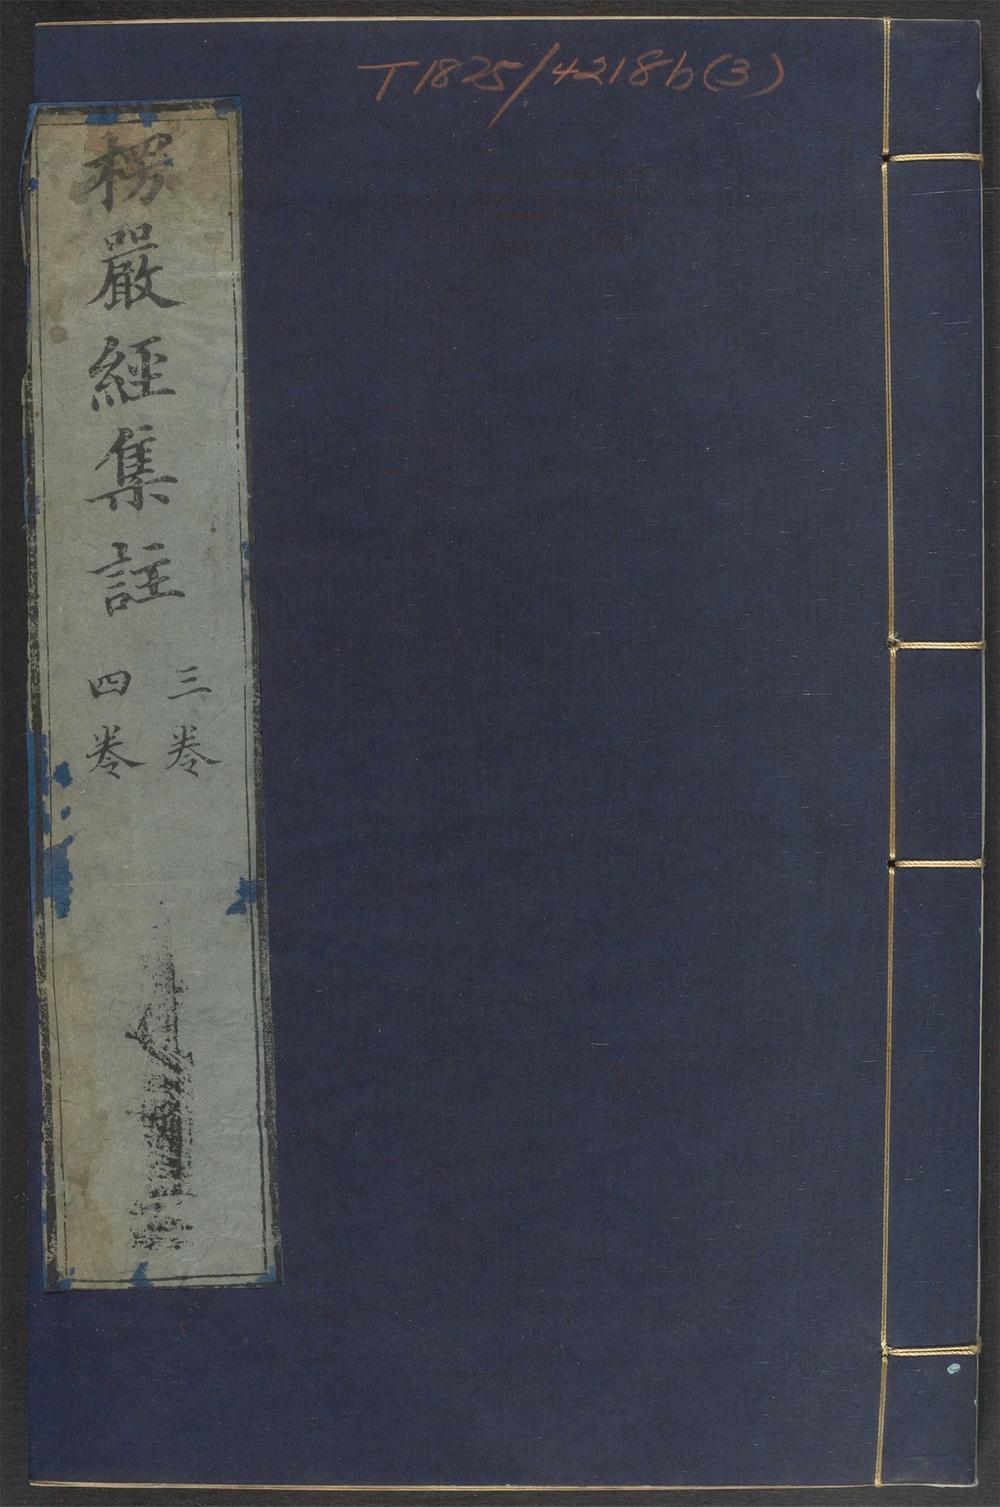 T1825/4218b(3)
楞嚴經集註
三卷
四卷